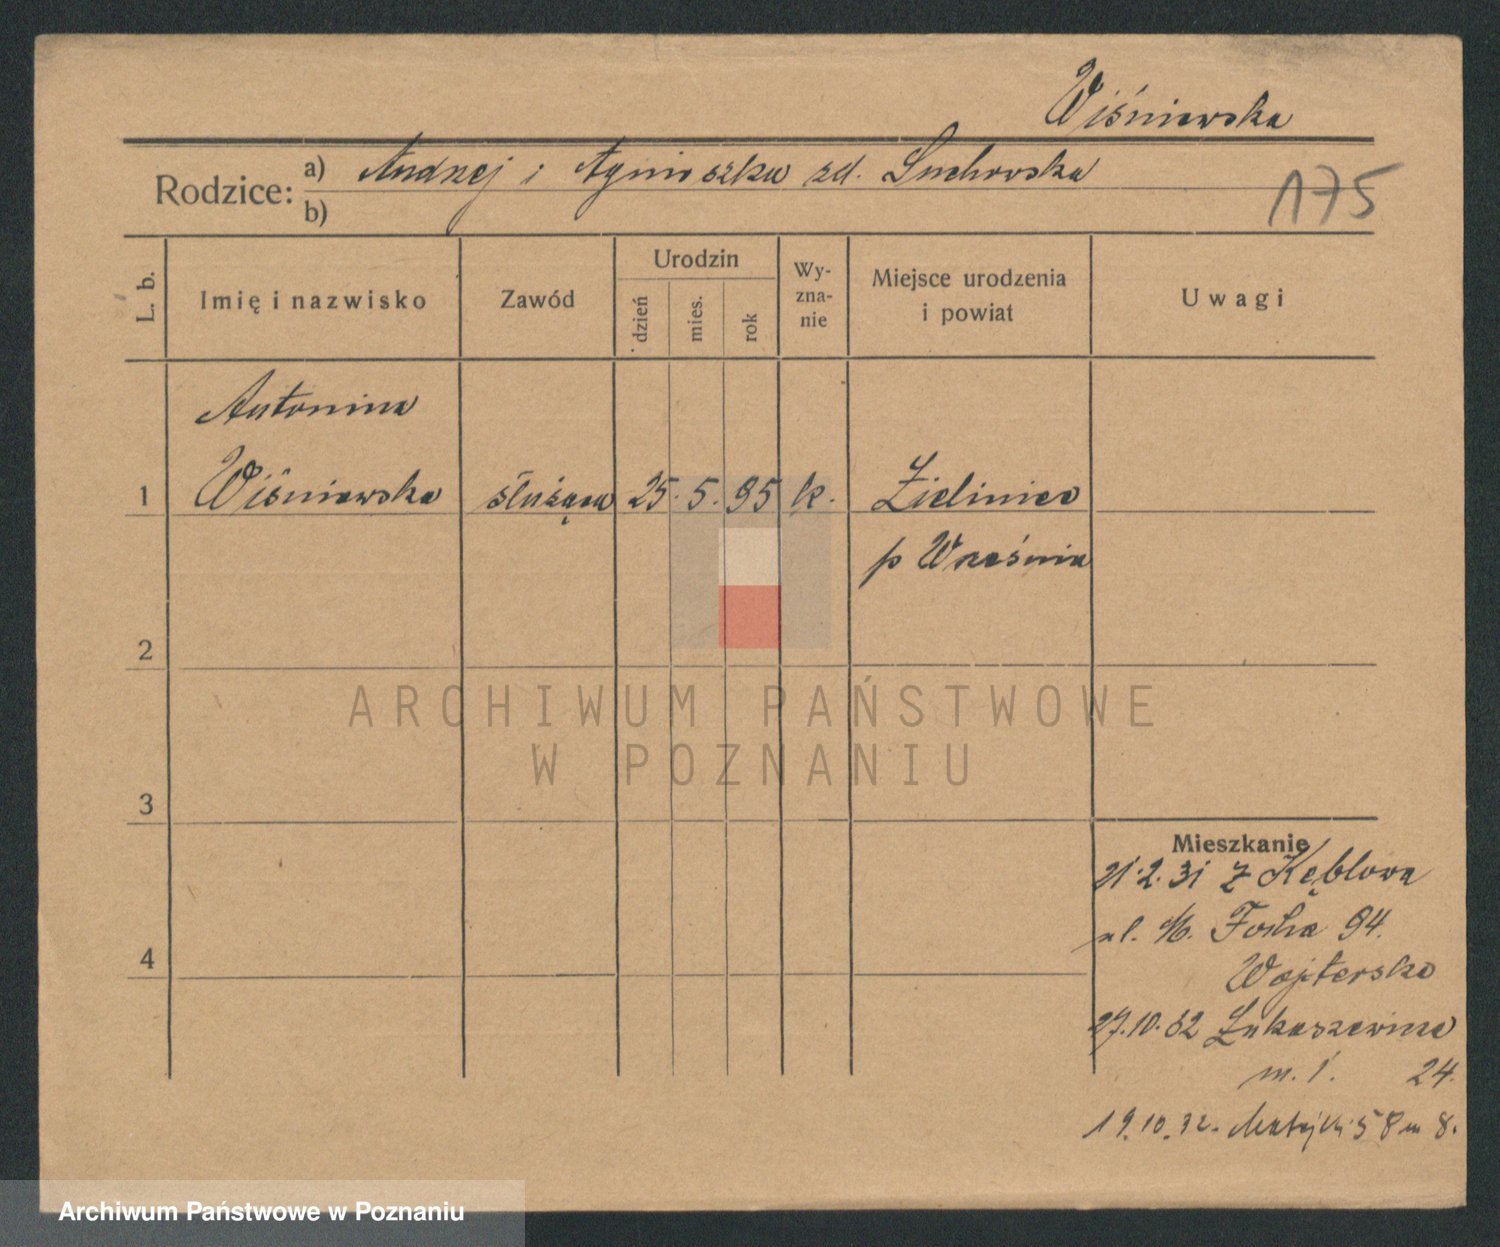 Wiśniewska
Rodzice:
a) Andrzej i Agnieszka zd. Suchorska
b)
175
L. b.
Imię i nazwisko
Zawód
Urodzin
dzień
mies.
rok
Wy-
zna-
nie
Miejsce urodzenia
i powiat
Uwagi
Antonina
1 Wiśniewska służąca 25. 5. 95 k. Zieliniec
p Września
2
3
4
Mieszkanie
21.2.31 z Kębłowa
ul. M. Focha 94.
Wojterska
27.10.32 Łukaszewicza
m. 1. 24.
19.10.32. Matejki 58 m 8.
ARCHIWUM PAŃSTWOWE
W POZNANIU
Archiwum Państwowe w Poznaniu